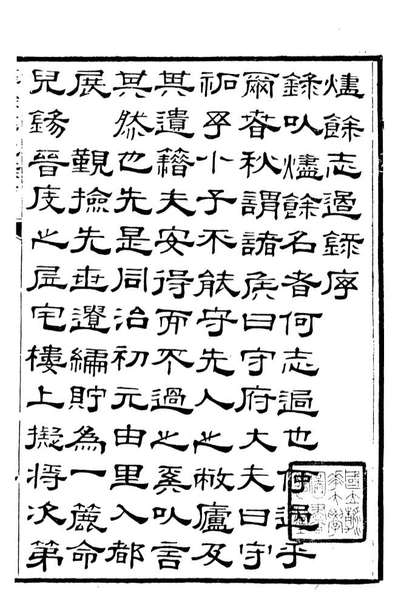 燼餘志過錄序
錄以燼餘名者何志過也何過乎
爾春秋謂諸侯曰守府大夫曰守
祏予小子不能守先人之敝廬及
其遺籍夫安得而不過之奚以言
其然也先是同治初元由里入都
展 覲撿先世遺編貯為一簏命
兒鍚晉度之居宅樓上擬將次第